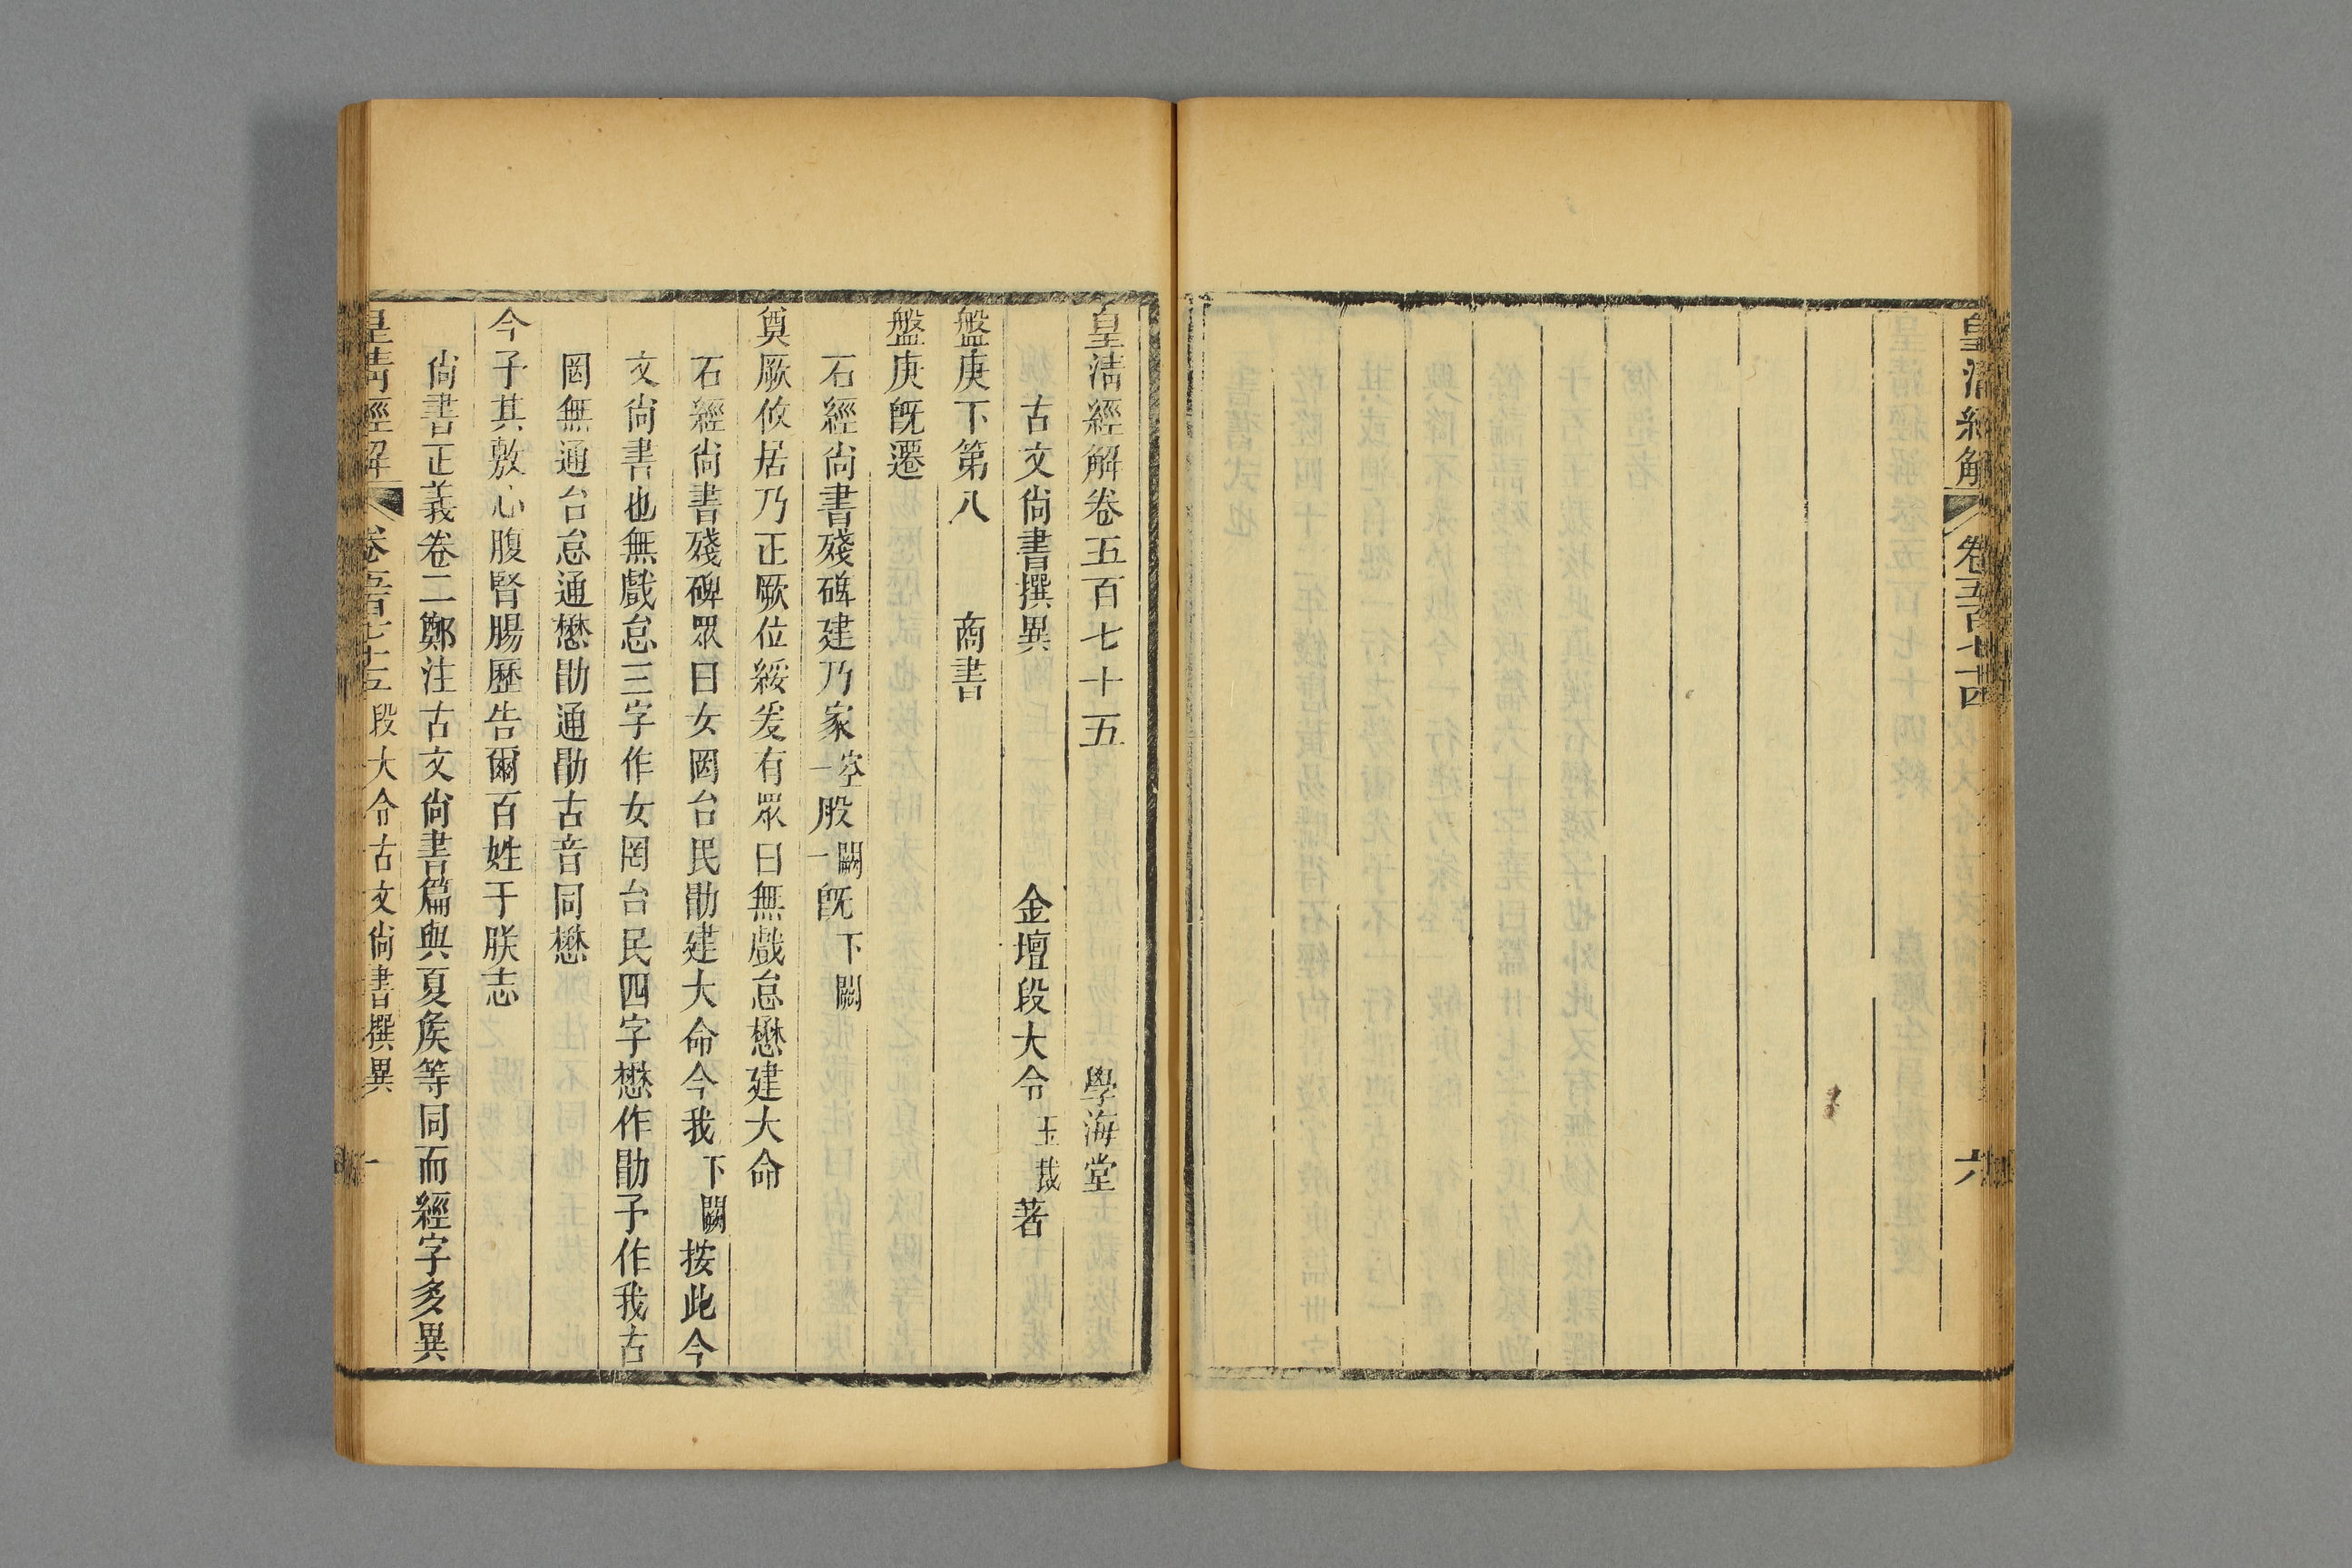 皇清經解
卷五百七十四
六
皇清經解卷五百七十五
學海堂
古文尙書撰異
金壇段大令玉裁著
盤庚下第八
商書
盤庚旣遷
石經尙書殘碑建乃家空一股闕一旣下闕
奠厥攸居乃正厥位綏爰有眾曰無戲怠懋建大命
石經尙書殘碑眾曰女罔台民勖建大命今我下闕按此今
文尙書也無戲怠三字作女罔台民四字懋作勖予作我古
罔無通台怠通懋勖通勖古音同懋
今予其敷心腹腎腸歷告爾百姓于朕志
尙書正義卷二鄭注古文尙書篇與夏矦等同而經字多異
皇清經解
卷五百七十五
段大令古文尙書撰異
一